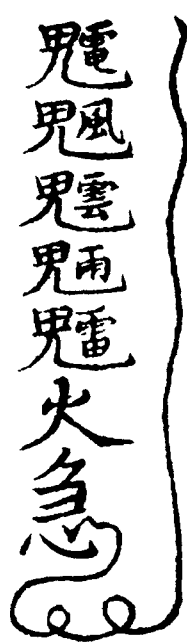 ⿺鬼電
⿺鬼風
⿺鬼雲
⿺鬼雨
⿺鬼雷
火
急